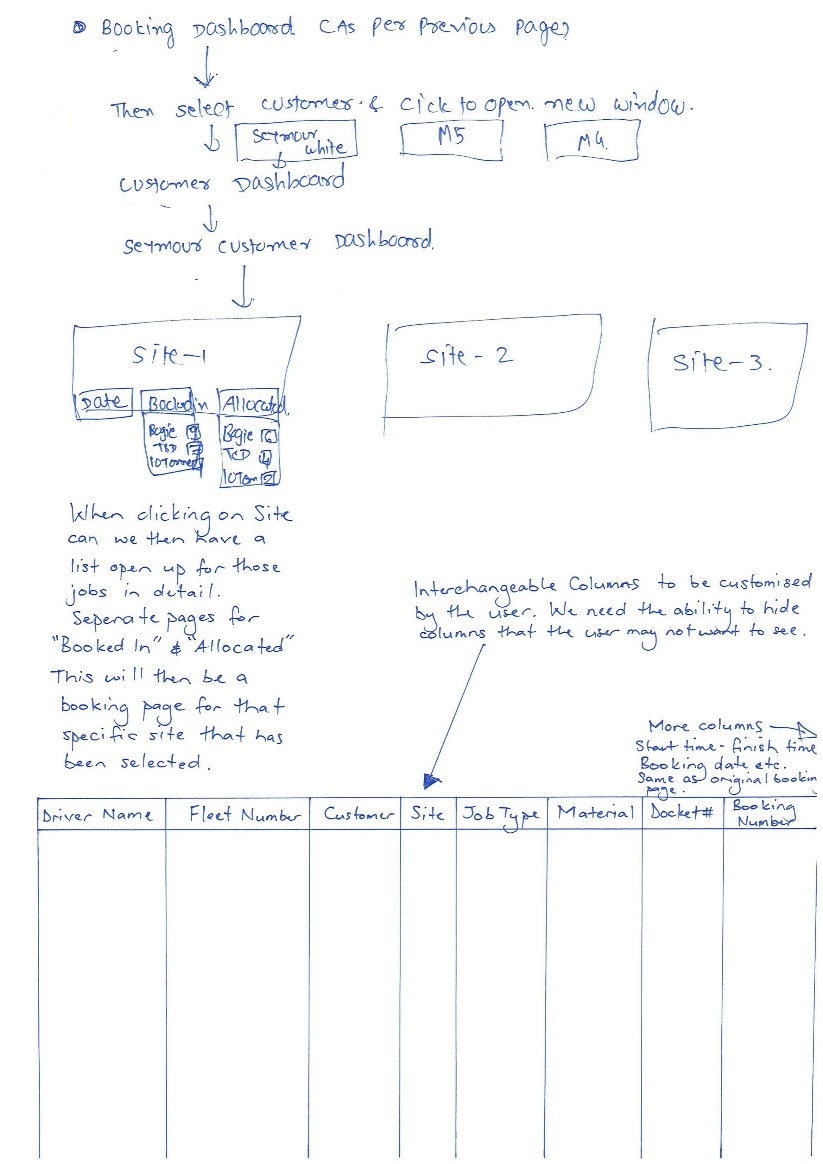 Booking Dashboard (As per previous page)
Then select customer & cick to open new window.
Seymour white
M5
M4.
customer Dashboard
Seymour customer Dashboard.
Site-1
Site - 2
Site-3.
Date
Booked in
Allocated.
Bogie 9
Bogie 6
10Tonner
10Ton 2
When clicking on Site
can we then have a
list open up for those
jobs in detail.
Seperate pages for
"Booked In" & "Allocated"
This will then be a
booking page for that
specific site that has
been selected.
Interchangeable Columns to be customised
by the user. We need the ability to hide
columns that the user may not want to see.
More columns
Start time - finish time
Booking date etc.
Same as original bookin
page.
Driver Name
Fleet Number
Customer
Site
Job Type
Material
Docket#
Booking Number